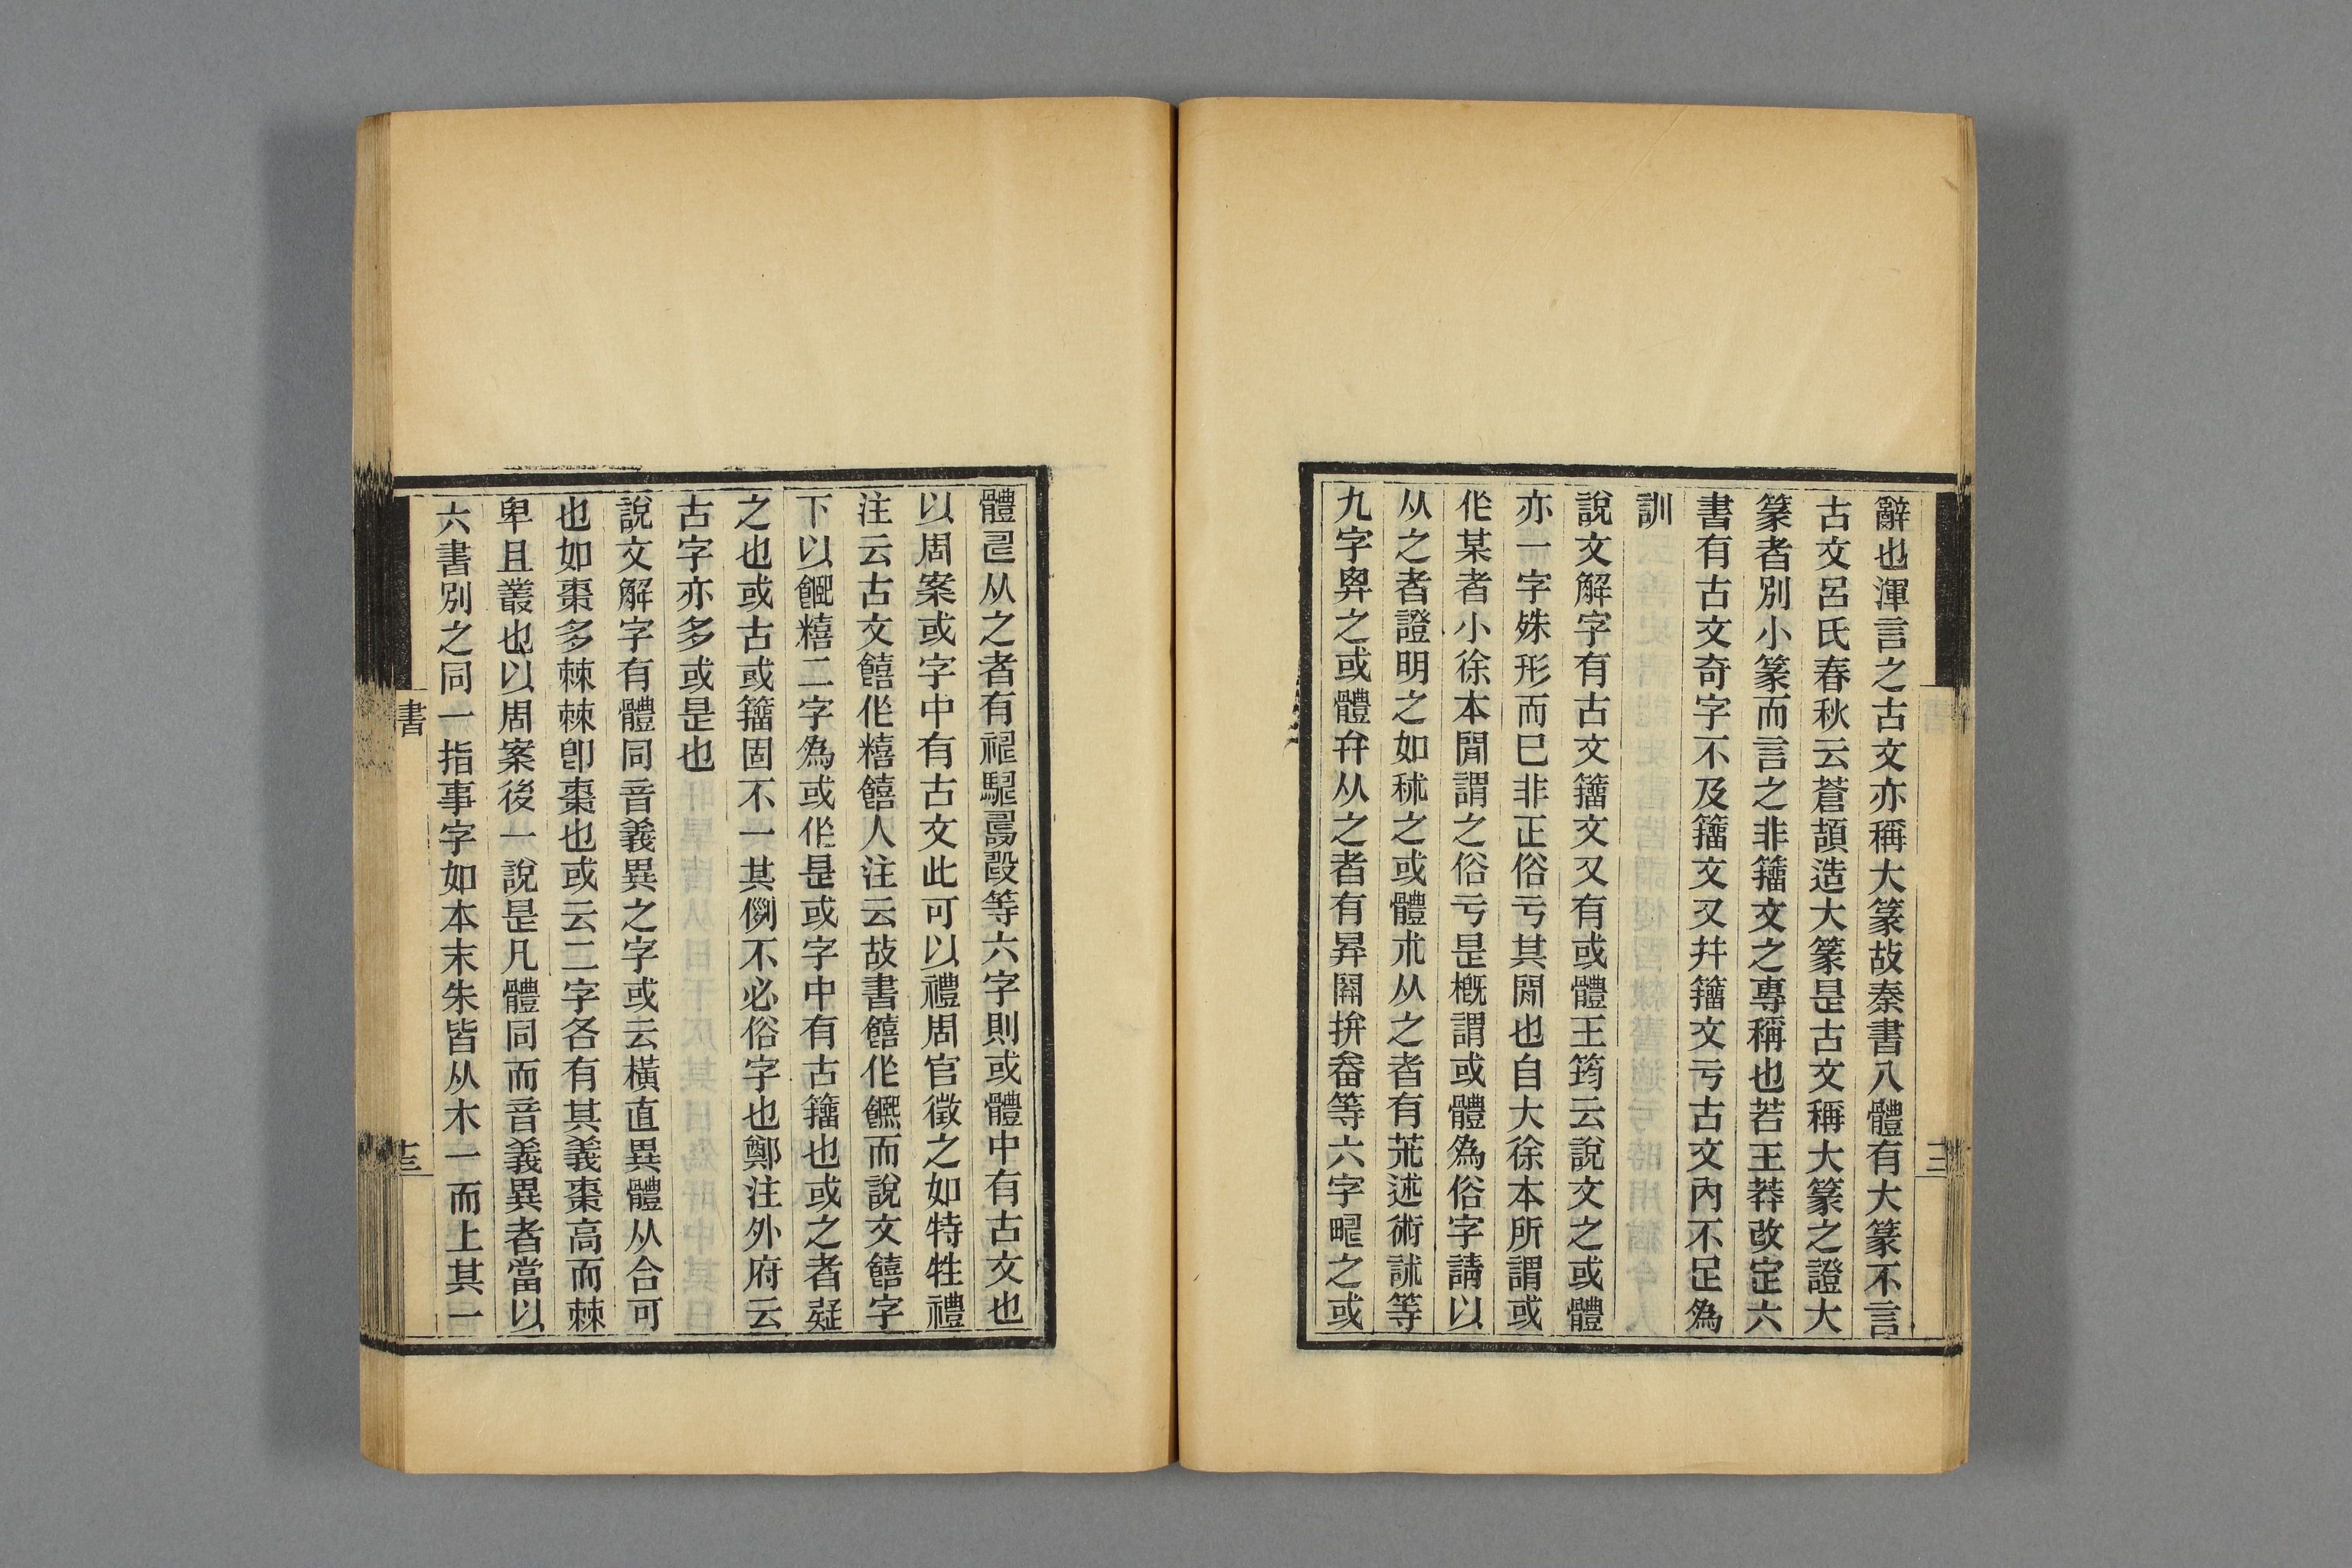 辭也渾言之古文亦稱大篆故秦書八體有大篆不言
古文呂氏春秋云蒼頡造大篆是古文稱大篆之證大
篆者別小篆而言之非籒文之專稱也若王莽改定六
書有古文奇字不及籒文又幷籒文亏古文內不足為
訓
說文解字有古文籒文又有或體王筠云說文之或體
亦一字殊形而已非正俗亏其閒也自大徐本所謂或
作某者小徐本閒謂之俗亏是槪謂或體為俗字請以
从之者證明之如秫之或體朮从之者有茮述術訹等
九字㢲之或體弁从之者有昇開拚畚等六字𤱿之或
體𠃬从之者有禔騠等六字則或體中有古文也
以周案或字中有古文此可以禮周官徵之如特牲禮
注云古文饎作糦饎人注云故書饎作䊠而說文饎字
下以䊠糦二字為或作是或字中有古籒也或之者疑
之也或古或籒固不一其例不必俗字也鄭注外府云
古字亦多或是也
說文解字有體同音義異之字或云橫直異體从合可
也如棗多棘棘卽棗也或云二字各有其義棗高而棘
卑且叢也以周案後一說是凡體同而音義異者當以
六書別之同一指事字如本末朱皆从木一而上其一
書
十三